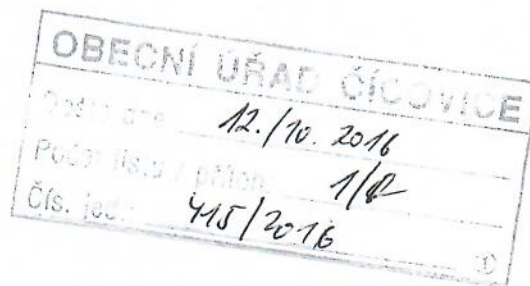 OBECNÍ ÚŘAD ČÍČOVICE
Došlo dne 12./10. 2016
Počet listů / příloh: 1/
Čís. jed.: 415/2016